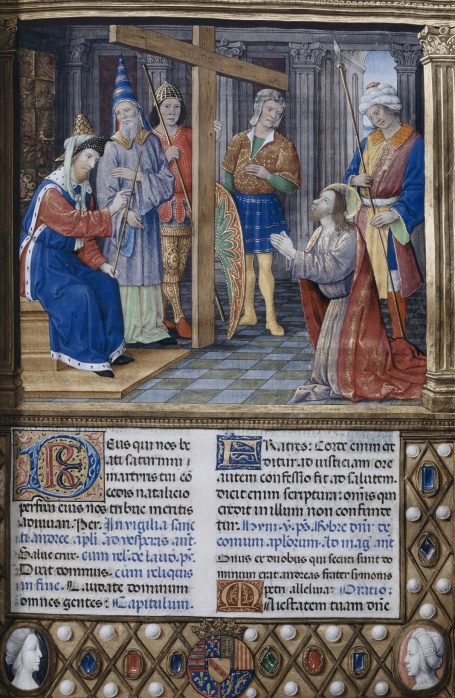 Eus qui nos be
ati saturnini
martyris tui cō
cedis natalicio
perfrui eius nos tribue meritis
adiuuari. Per. In vigilia sanc
ti andree apli. ad vesperas ant.
Salue crux. cum rel. de laud. ps.
Dixit dominus. cum reliquis
in fine. Laudate dominum
omnes gentes: Capitulum.
Ratres: Corde enim cre
ditur ad iusticiam ore
autem confessio fit ad salutem.
dicit enim scriptura: omnis qui
credit in illum non confunde
tur.
comum aplorum. Ad mag. ant.
Unus ex duobus qui secuti sunt do
minum erat andreas frater simonis
petri alleluia: Oratio:
Maiestatem tuam dn̄e